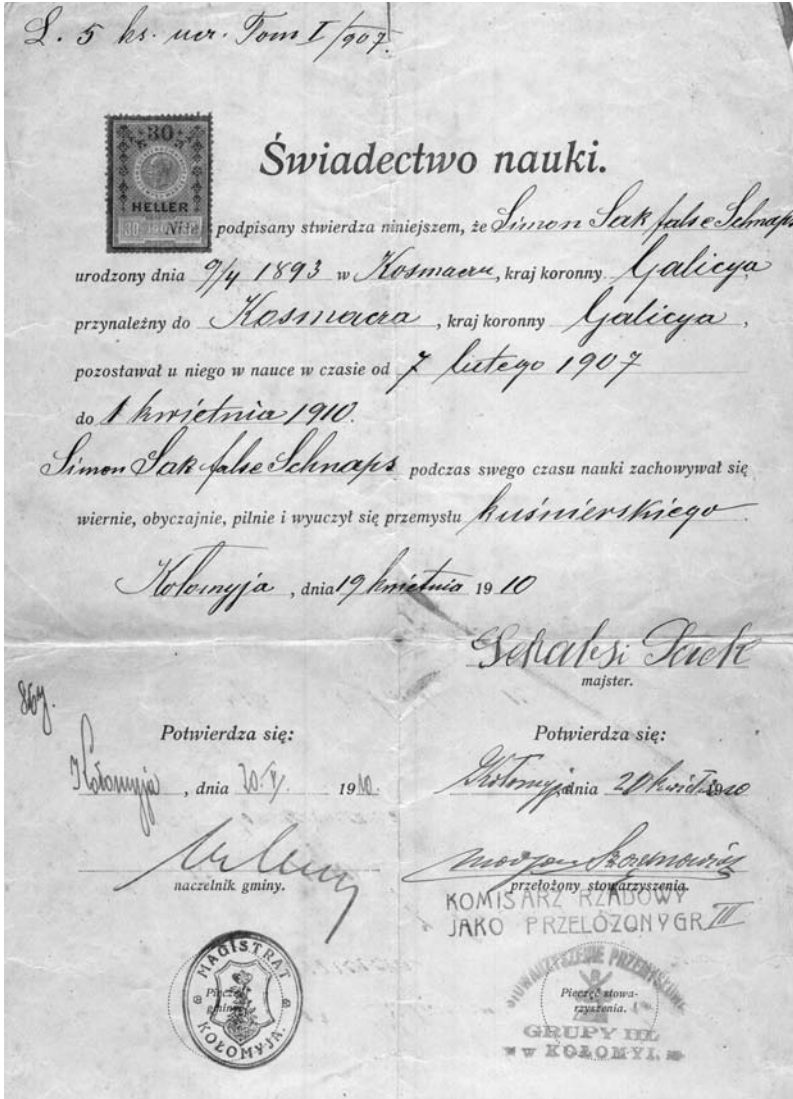 L. 5 ks. ucz. Tom I/907.
30
HELLER
Świadectwo nauki.
podpisany stwierdza niniejszem, że Simon Sak false Schnaps
urodzony dnia 9/4 1893 w Kosmaczu, kraj koronny Galicya
przynależny do Kosmacza, kraj koronny Galicya,
pozostawał u niego w nauce w czasie od 7 lutego 1907
do 1 kwietnia 1910.
Simon Sak false Schnaps podczas swego czasu nauki zachowywał się
wiernie, obyczajnie, pilnie i wyuczył się przemysłu kuśnierskiego
Kołomyja, dnia 19 kwietnia 1910
majster.
Potwierdza się:
Kołomyja, dnia 1910.
naczelnik gminy.
MAGISTRAT
KOŁOMYJA.
Pieczęć
gminy.
Potwierdza się:
Kołomyja dnia 20 kwietnia 1910
przełożony stowarzyszenia.
KOMISARZ RZADOWY
JAKO PRZELÓZONY GR. III
STOWARZYSZENIE PRZEMYSŁOWE
Pieczęć stowa-
rzyszenia.
GRUPY III.
W KOŁOMYI.